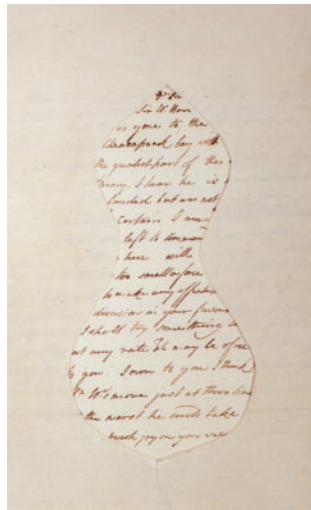 Sir W. Howe
is gone to the
Chesapeak bay with
the greatest part of the
army. I hear he is
landed but am not
certain. I am
left to command
here with
too small a force
to make any effectual
diversion in your favour
I shall try something
at any rate. It may be of use
to you. I own to you I think
Sr W's move just at this time
the worst he could take
much joy on your